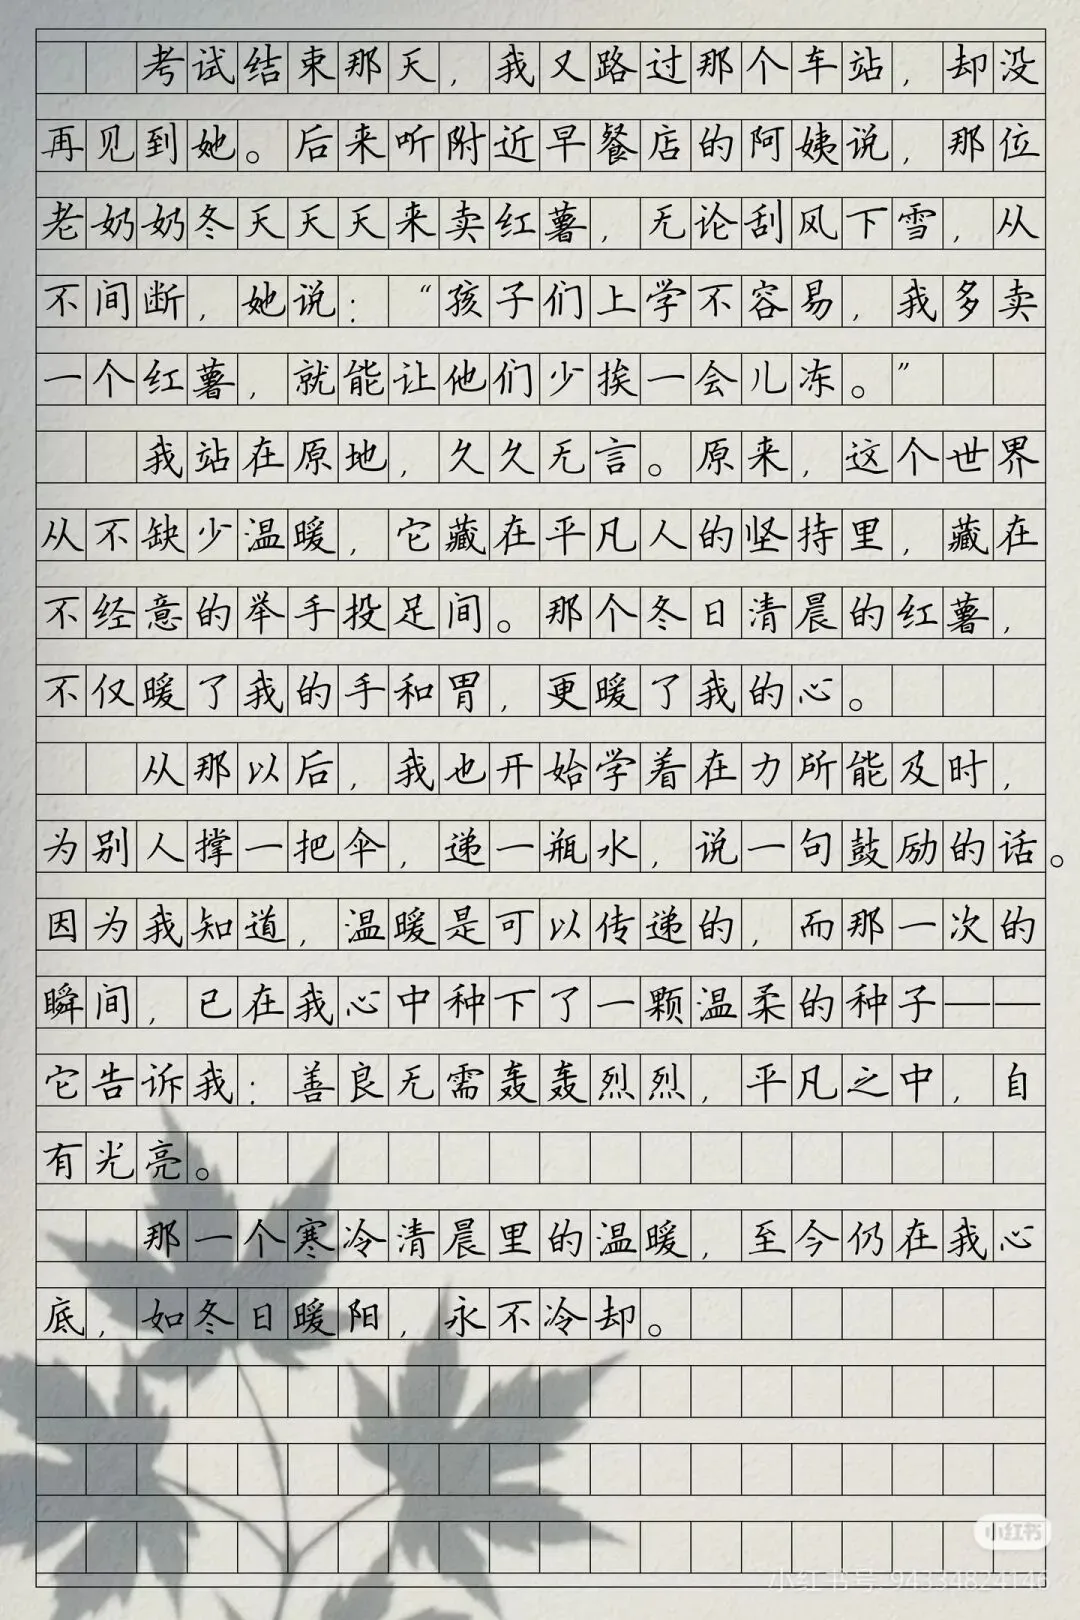 考试结束那天，我又路过那个车站，却没
再见到她。后来听附近早餐店的阿姨说，那位
老奶奶冬天天天来卖红薯，无论刮风下雪，从
不间断，她说：“孩子们上学不容易，我多卖
一个红薯，就能让他们少挨一会儿冻。”
我站在原地，久久无言。原来，这个世界
从不缺少温暖，它藏在平凡人的坚持里，藏在
不经意的举手投足间。那个冬日清晨的红薯，
不仅暖了我的手和胃，更暖了我的心。
从那以后，我也开始学着在力所能及时，
为别人撑一把伞，递一瓶水，说一句鼓励的话。
因为我知道，温暖是可以传递的，而那一次的
瞬间，已在我心中种下了一颗温柔的种子——
它告诉我：善良无需轰轰烈烈，平凡之中，自
有光亮。
那一个寒冷清晨里的温暖，至今仍在我心
底，如冬日暖阳，永不冷却。
小红书
小红书号: 94334824146